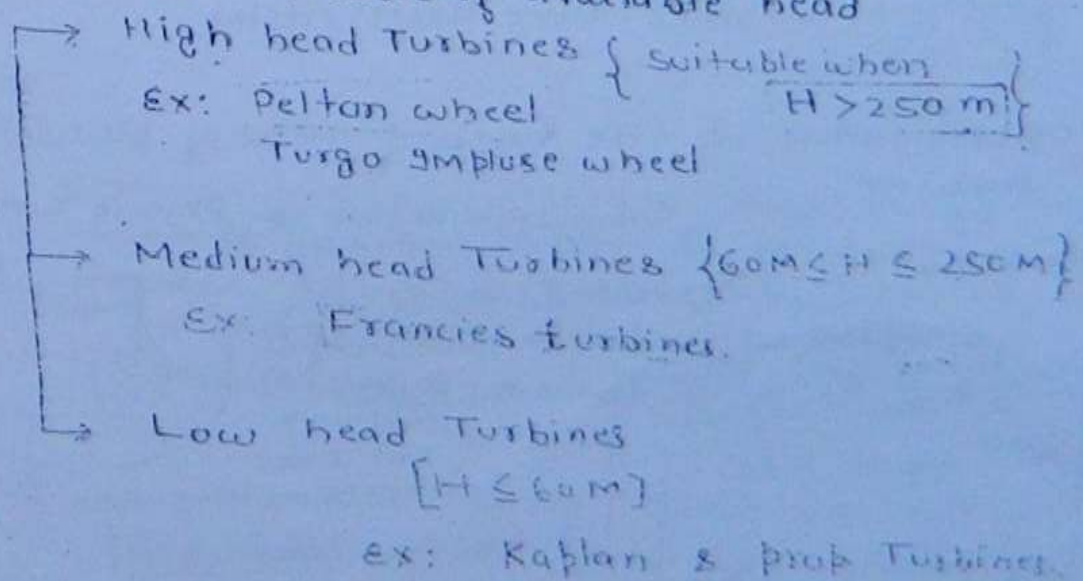 available head
High head Turbines { Suitable when
H > 250 m }
Ex: Peltan wheel
Turgo Impluse wheel
Medium head Turbines {60M ≤ H ≤ 250M}
Ex: Francies turbines.
Low head Turbines
[H ≤ 60M]
Ex: Kaplan & prop Turbines.